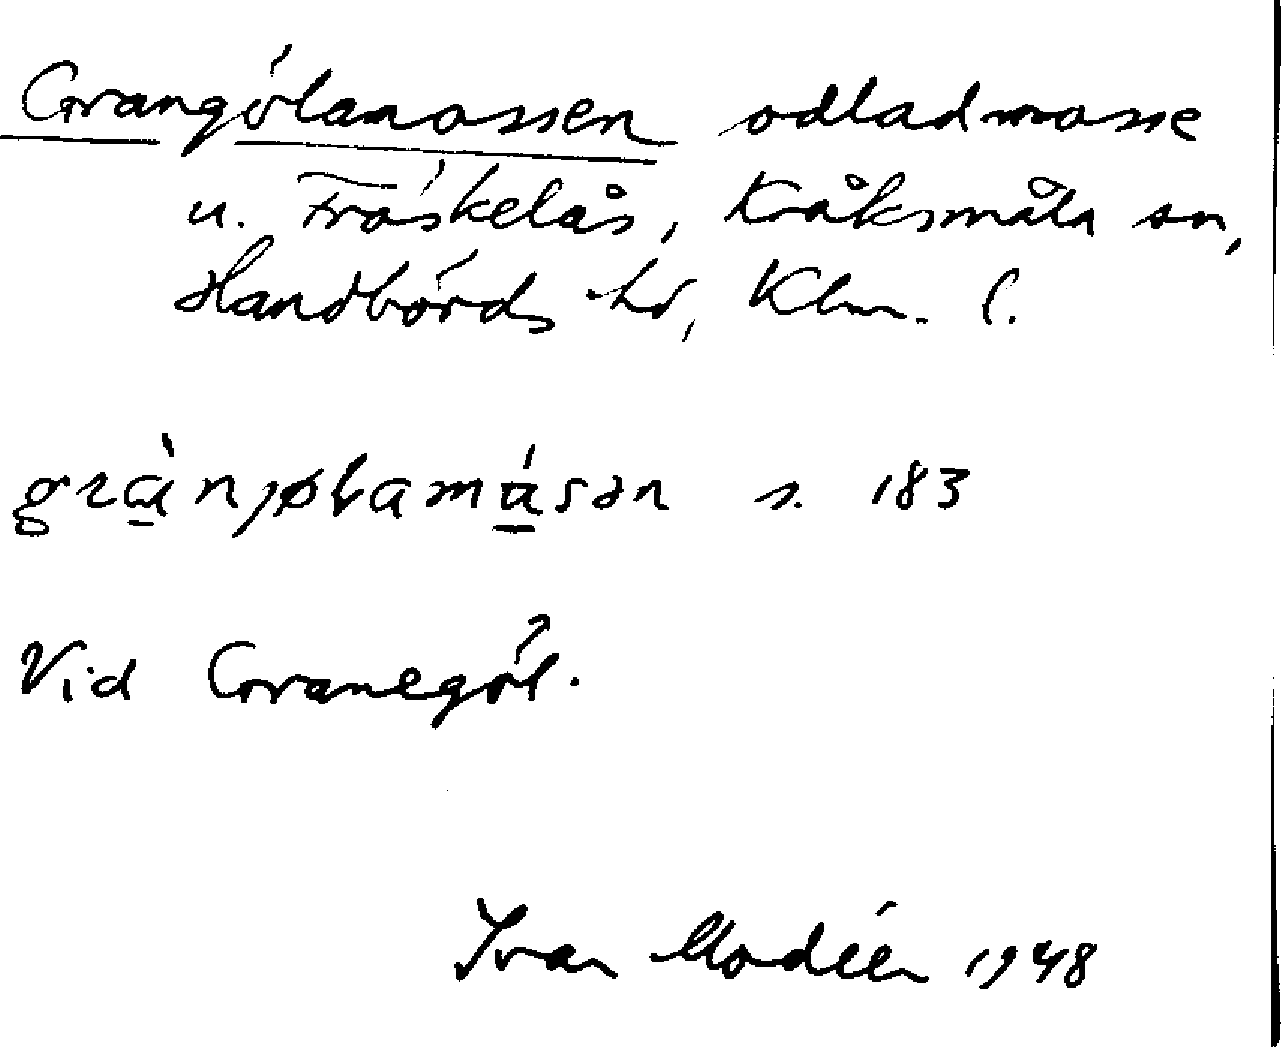 Grangölamossen odlad mosse
u. Fröskelås, Kråksmåla sn,
Handbörds hd, Klm. l.
grànjøɫamásən s. 183
Vid Granegöl.
Ivan Modéer 1948